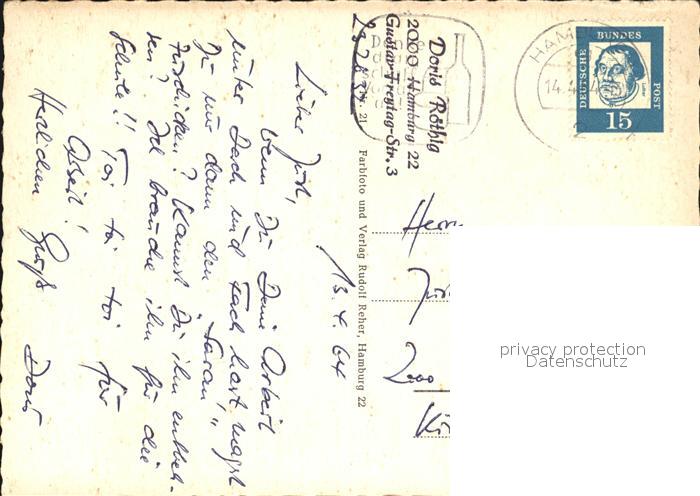 13. 4. 64
Lieber Jürg,
wenn Du Deine Arbeit
unter Dach und Fach hast, magst
Du mir dann den "Faran"
zuschicken? Kannst Du ihn entbeh-
ren? Ich brauche ihn für die
Schule!! Toi toi toi für
Arbeit!
Herzlichen Gruß
Doris
Doris Röthig
2000 Hamburg 22
Gustav-Freytag-Str. 3
Farbfoto und Verlag Rudolf Reher, Hamburg 22
HAM
14.4.
DEUTSCHE
BUNDES
POST
15
Herrn
2000
privacy protection
Datenschutz